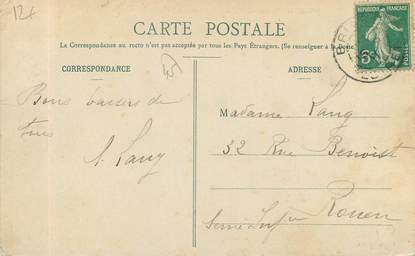 12f
CARTE POSTALE
La Correspondance au recto n'est pas acceptée par tous les Pays Étrangers. (Se renseigner à la Poste)
CORRESPONDANCE
ADRESSE
RÉPUBLIQUE FRANÇAISE
POSTES
Bons baisers de
tous
A. Lang
Madame Lang
32 Rue Benoist
Rouen
Seine Infre